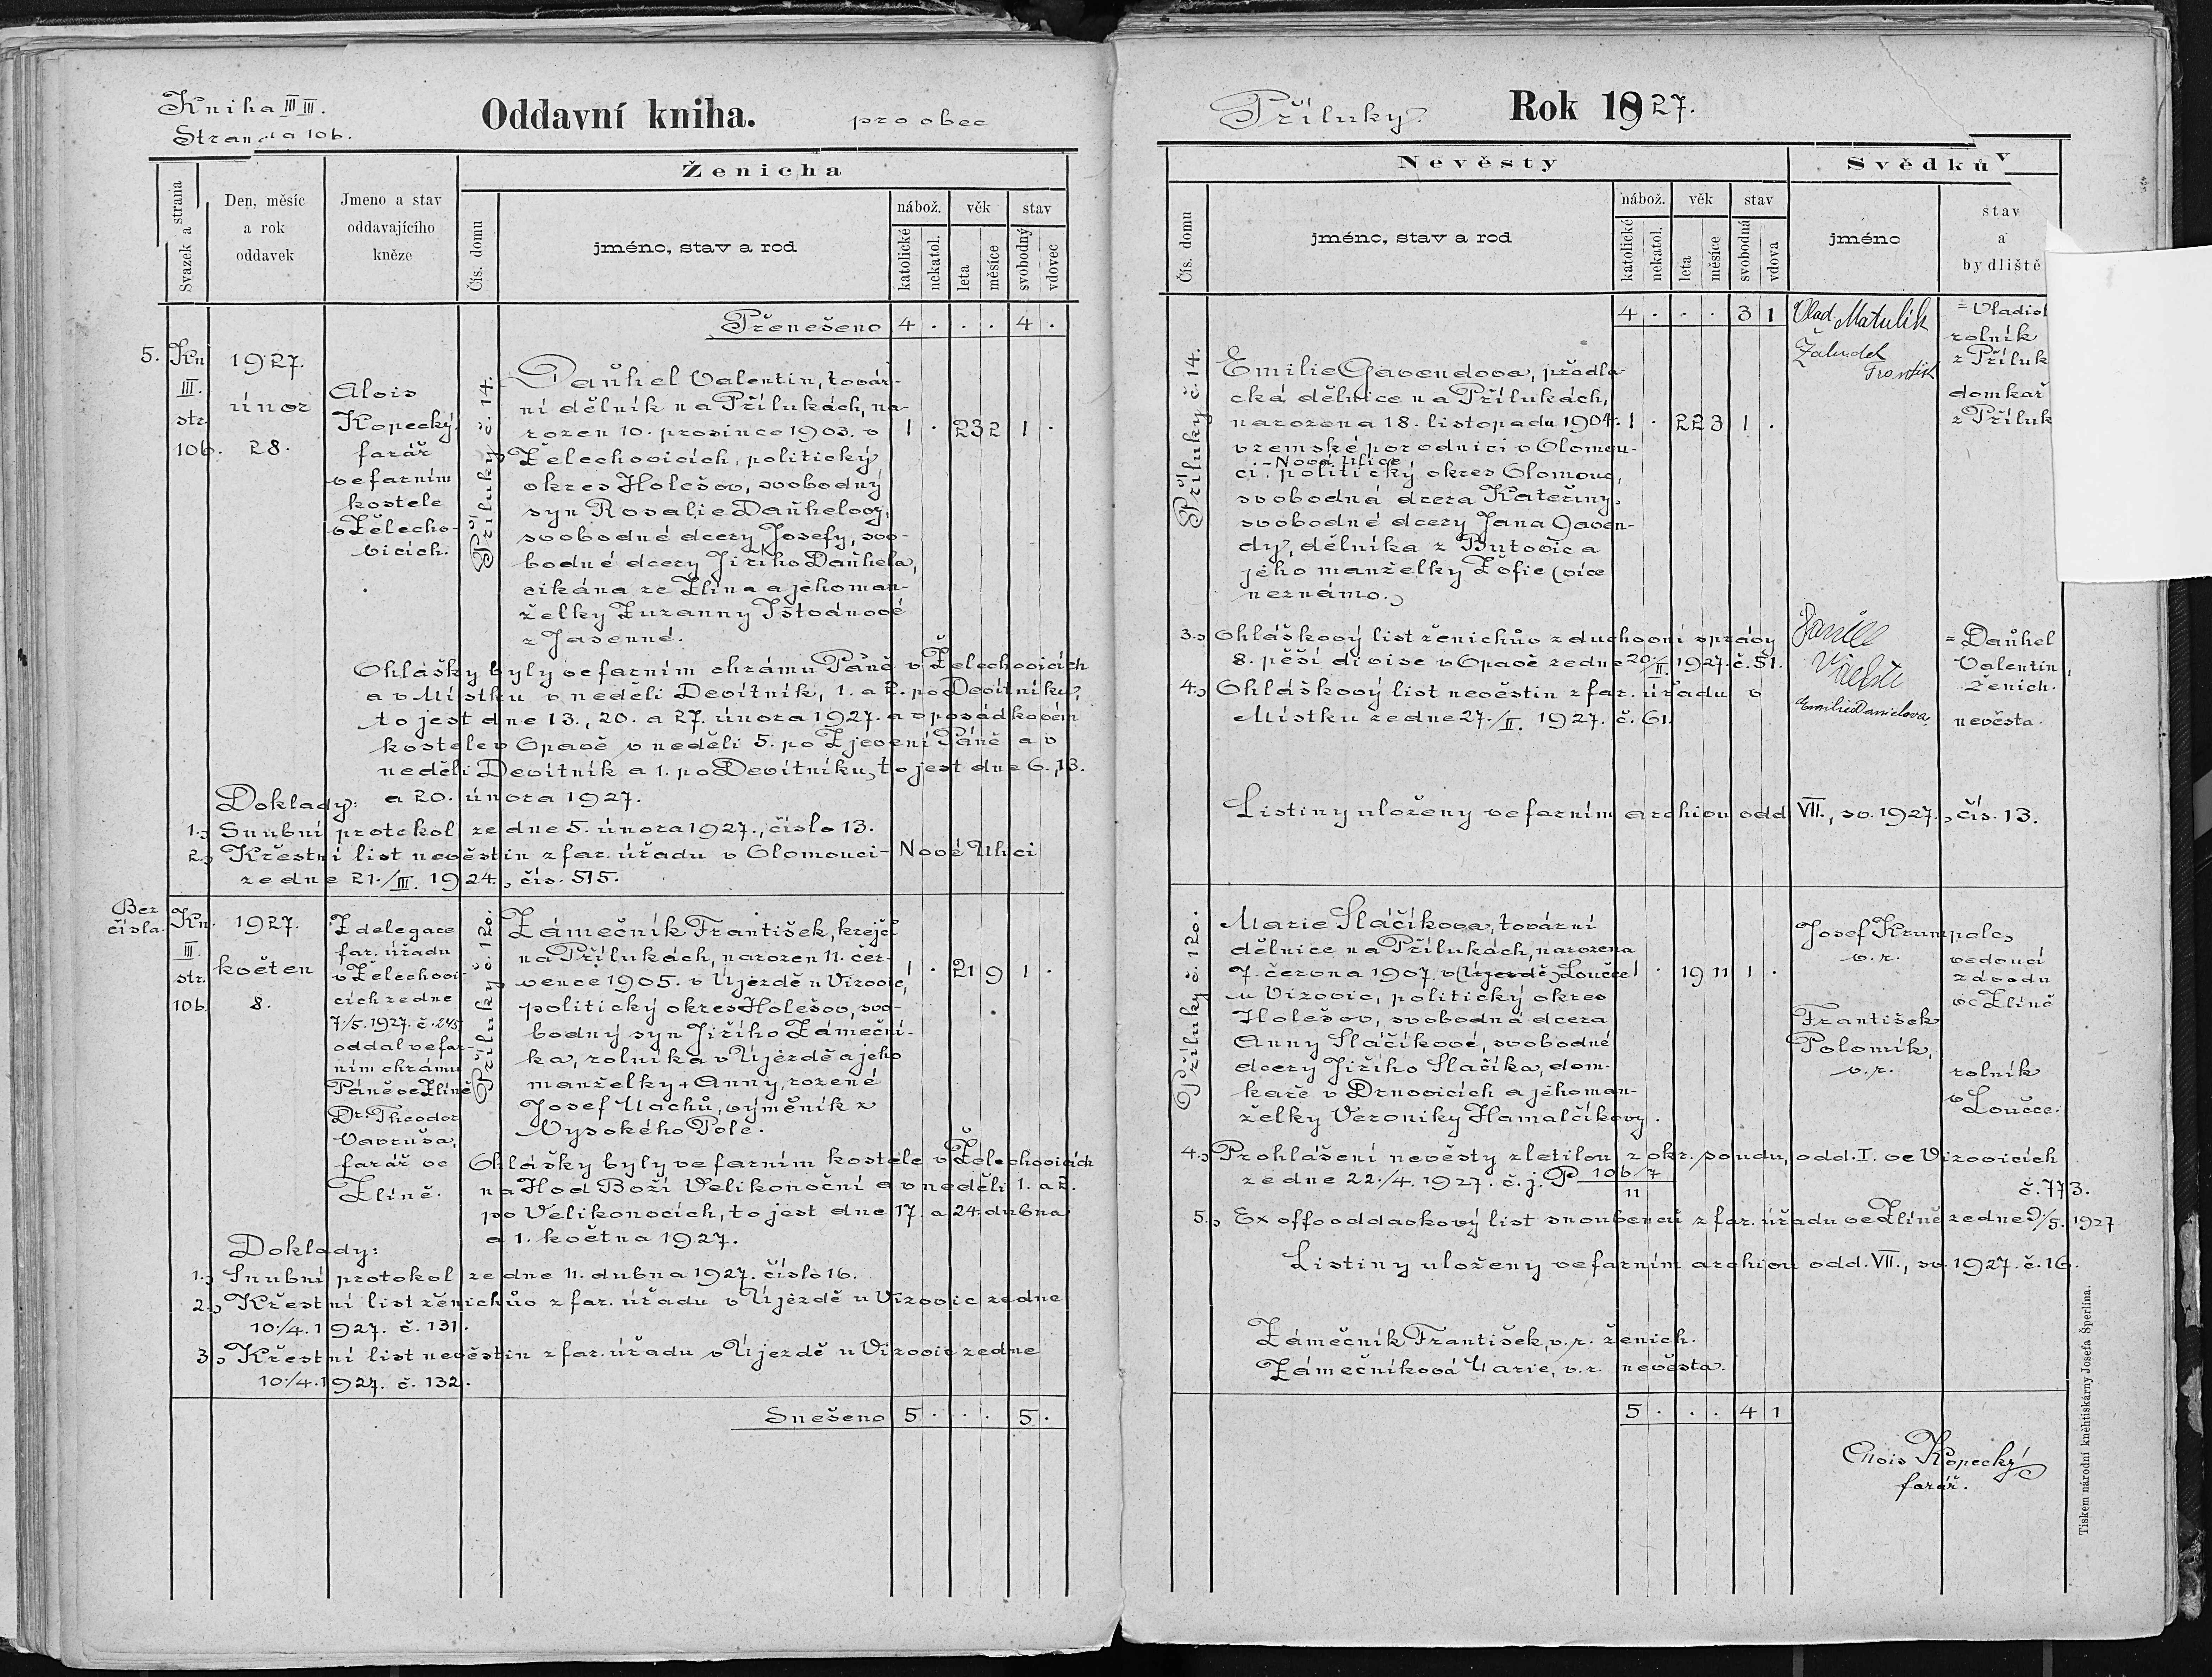 Kniha III III.
Strana 106.
Oddavní kniha.
pro obec
Svazek a strana
Den, měsíc
a rok
oddavek
Jmeno a stav
oddavajícího
kněze
Ženicha
Čís. domu
jméno, stav a rod
nábož.
katolické
nekatol.
věk
leta
měsíce
stav
svobodný
vdovec
Přenešeno 4 . . . 4 .
5. Kn
III.
str.
106.
1927.
únor
28.
Alois
Kopecký,
farář
ve farním
kostele
v Želecho-
vicích.
Příluky č. 14.
Daňhel Valentin, továr-
ní dělník na Přílukách, na-
rozen 10. prosince 1903. v
Želechovicích, politický
okres Holešov, svobodný
syn Rosalie Daňhelovy,
svobodné dcery Josefy, svo-
bodné dcery Jiřího Daňhela,
cikána ze Zlína a jeho man-
želky Zuzanny Ištvánové
z Jasenné.
1 . 23 2 1 .
Ohlášky byly ve farním chrámu Páně v Želechovicích
a v Místku v neděli Devítník, 1. a 2. po Devítníku,
to jest dne 13., 20. a 27. února 1927. a v posádkovém
kostele v Opavě v neděli 5. po Zjevení Páně a v
neděli Devítník a 1. po Devítníku, to jest dne 6., 13.
a 20. února 1927.
Doklady:
1.) Snubní protokol ze dne 5. února 1927., číslo 13.
2.) Křestní list nevěstin z far. úřadu v Olomouci - Nové Ulici
ze dne 21./III. 1924., čís. 515.
Bez
čísla.
Kn.
III.
str.
106
1927.
květen
8.
Z delegace
far. úřadu
v Želechovi-
cích ze dne
7./5. 1927. č. 245
oddal ve far-
ním chrámu
Páně ve Zlíně
Dr. Theodor
Vavruša,
farář ve
Zlíně.
Příluky č. 120.
Zámečník František, krejčí
na Přílukách, narozen 11. čer-
vence 1905. v Újezdě u Vizovic,
politický okres Holešov, svo-
bodný syn Jiřího Zámeční-
ka, rolníka v Újezdě a jeho
manželky + Anny, rozené
Josef Machů, výměník z
Vysokého Pole.
1 . 21 9 1 .
Ohlášky byly ve farním kostele v Želechovicích
na Hod Boží Velikonoční a v neděli 1. a 2.
po Velikonocích, to jest dne 17. a 24. dubna
a 1. května 1927.
Doklady:
1.) Snubní protokol ze dne 11. dubna 1927. číslo 16.
2.) Křestní list ženichův z far. úřadu v Újezdě u Vizovic ze dne
10./4. 1927. č. 131.
3.) Křestní list nevěstin z far. úřadu v Újezdě u Vizovic ze dne
10./4. 1927. č. 132.
Snešeno 5 . . . 5 .
Příluky.
Rok 1927.
Nevěsty
Svědků
v
Čís. domu
jméno, stav a rod
nábož.
katolické
nekatol.
věk
leta
měsíce
stav
svobodná
vdova
jméno
stav
a
bydliště
4 . . . 3 1
Příluky č. 14.
Emilie Gavendova, přádla-
cká dělnice na Přílukách,
narozena 18. listopadu 1904.
v zemské porodnici v Olomou-
- Nová Ulice
ci, politický okres Olomouc,
svobodná dcera Kateřiny,
svobodné dcery Jana Gaven-
dy, dělníka z Butovic a
jeho manželky Žofie (více
neznámo.)
1 . 22 3 1 .
Vlad. Matulík
Žaludek
= Vladisl
rolník
z Příluk
domkař
z Příluk
3.) Ohláškový list ženichův z duchovní správy
8. pěší divise v Opavě ze dne 20./II. 1927. č. 51.
4.) Ohláškový list nevěstin z far. úřadu v
Místku ze dne 27./II. 1927. č. 61.
Emilie Danielova
= Daňhel
Valentin,
ženich.
nevěsta.
Listiny uloženy ve farním archivu odd. VII., sv. 1927., čís. 13.
Příluky č. 120.
Marie Slačíkova, tovární
dělnice na Přílukách, narozena
7. června 1907. v (Újezdě) Loučce
u Vizovic, politický okres
Holešov, svobodná dcera
Anny Slačíkové, svobodné
dcery Jiřího Slačíka, dom-
kaře v Drnovicích a jeho man-
želky Veroniky Hamalčíkovy.
1 . 19 11 1 .
Josef Krumpolc,
v. r.
vedoucí
závodu
ve Zlíně
František
Polomík,
v. r.
rolník
v Loučce.
4.) Prohlášení nevěsty zletilou z okr. soudu, odd. I. ve Vizovicích
ze dne 22./4. 1927. č. j. P 106/7
11
č. 773.
5.) Ex offo oddavkový list snoubenců z far. úřadu ve Zlíně ze dne 9./5. 1927
Listiny uloženy ve farním archivu odd. VII., sv. 1927. č. 16.
Zámečník František, v. r. ženich.
Zámečníková Marie, v. r. nevěsta.
5 . . . 4 1
Alois Kopecký
farář.
Tiskem národní knihtiskárny Josefa Šperlína.